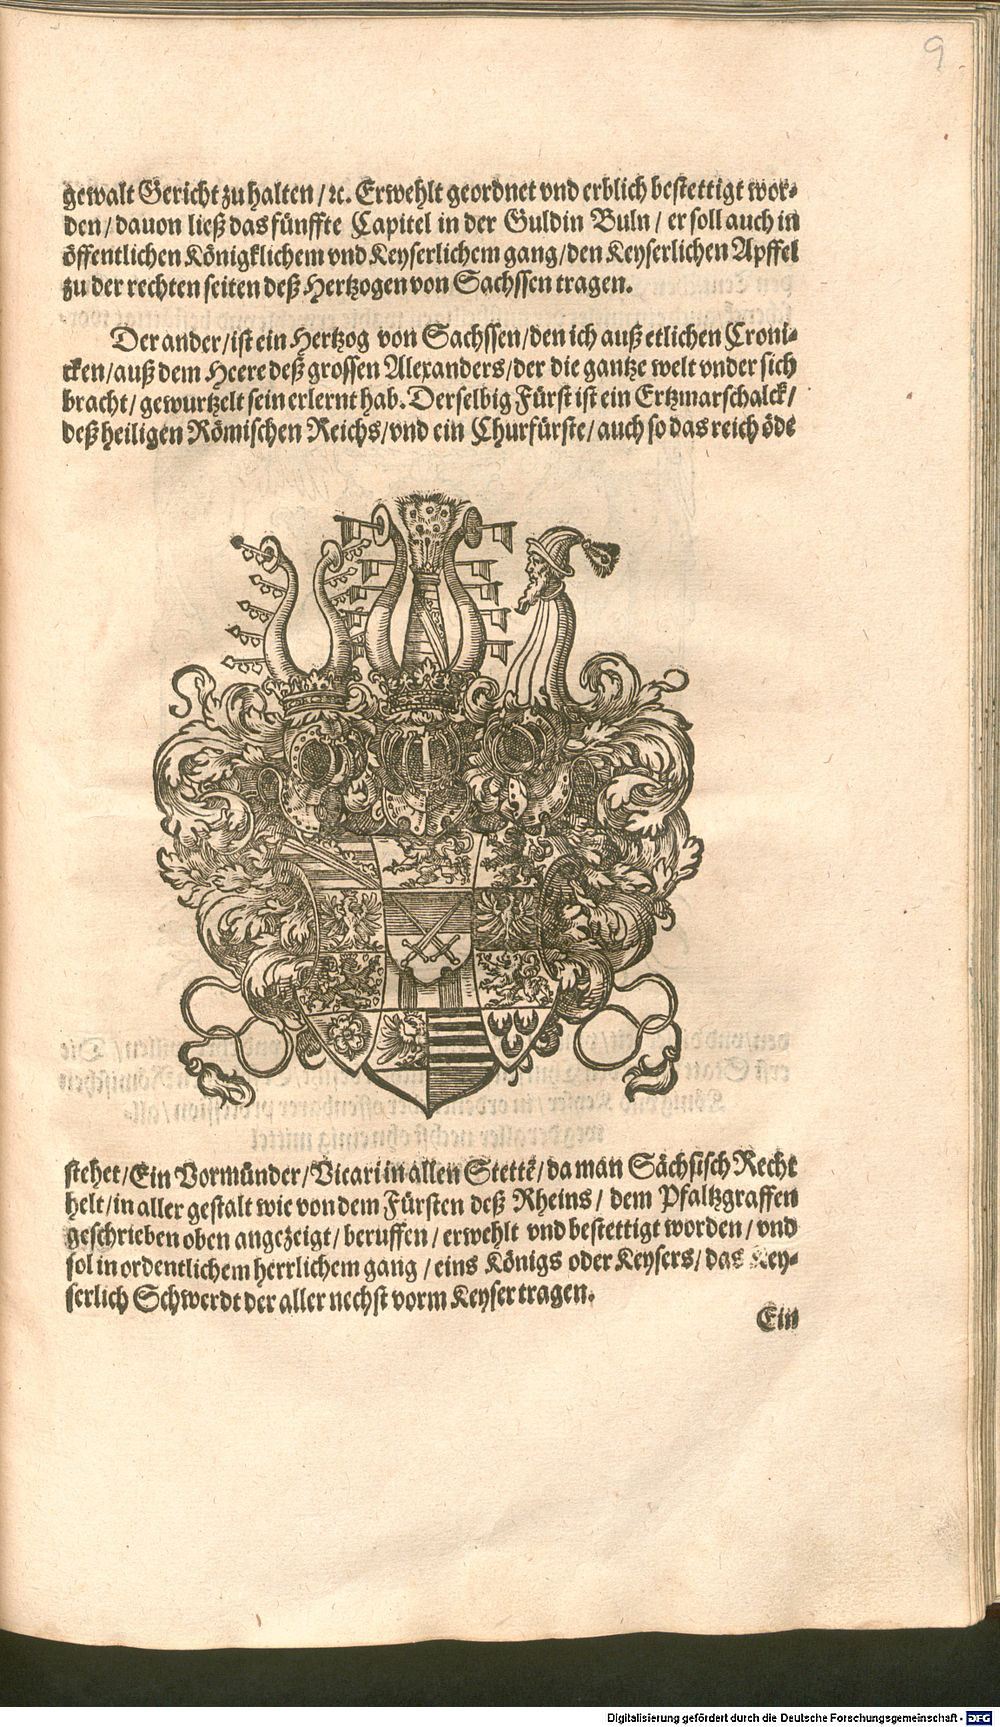 9
gewalt Gericht zu halten / ꝛc. Erwehlt geordnet vnd erblich bestettigt wor-
den / dauon ließ das fünffte Capitel in der Guldin Buln / er soll auch in
öffentlichen Königklichem vnd Keyserlichem gang / den Keyserlichen Apffel
zu der rechten seiten deß Hertzogen von Sachssen tragen.
Der ander / ist ein Hertzog von Sachssen / den ich auß etlichen Croni-
cken / auß dem Heere deß grossen Alexanders / der die gantze welt vnder sich
bracht / gewurtzelt sein erlernt hab. Derselbig Fürst ist ein Ertzmarschalck /
deß heiligen Römischen Reichs / vnd ein Churfürste / auch so das reich öde
stehet / Ein Vormünder / Vicari in allen Stettẽ / da man Sächsisch Recht
helt / in aller gestalt wie von dem Fürsten deß Rheins / dem Pfaltzgraffen
geschrieben oben angezeigt / beruffen / erwehlt vnd bestettigt worden / vnd
sol in ordentlichem herrlichem gang / eins Königs oder Keysers / das Key-
serlich Schwerdt der aller nechst vorm Keyser tragen.
Ein
Digitalisierung gefördert durch die Deutsche Forschungsgemeinschaft - DFG